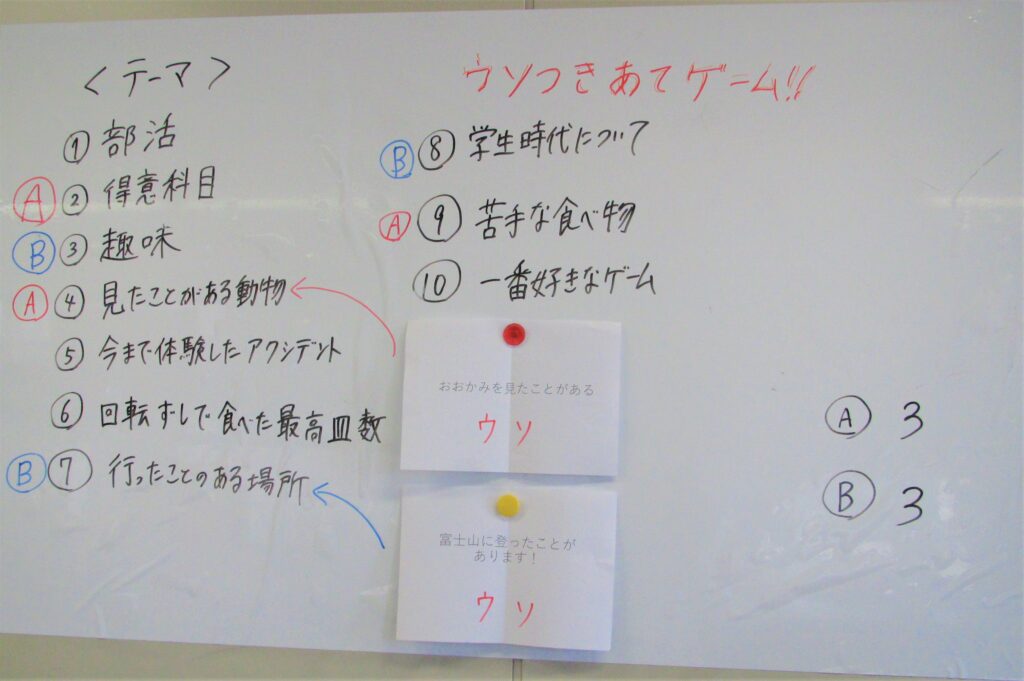 <テーマ>
① 部活
A ② 得意科目
B ③ 趣味
A ④ 見たことがある動物
⑤ 今まで体験したアクシデント
⑥ 回転ずしで食べた最高皿数
B ⑦ 行ったことのある場所
ウソつきあてゲーム!!
B ⑧ 学生時代について
A ⑨ 苦手な食べ物
⑩ 一番好きなゲーム
おおかみを見たことがある
ウソ
富士山に登ったことが
あります！
ウソ
Ⓐ 3
Ⓑ 3